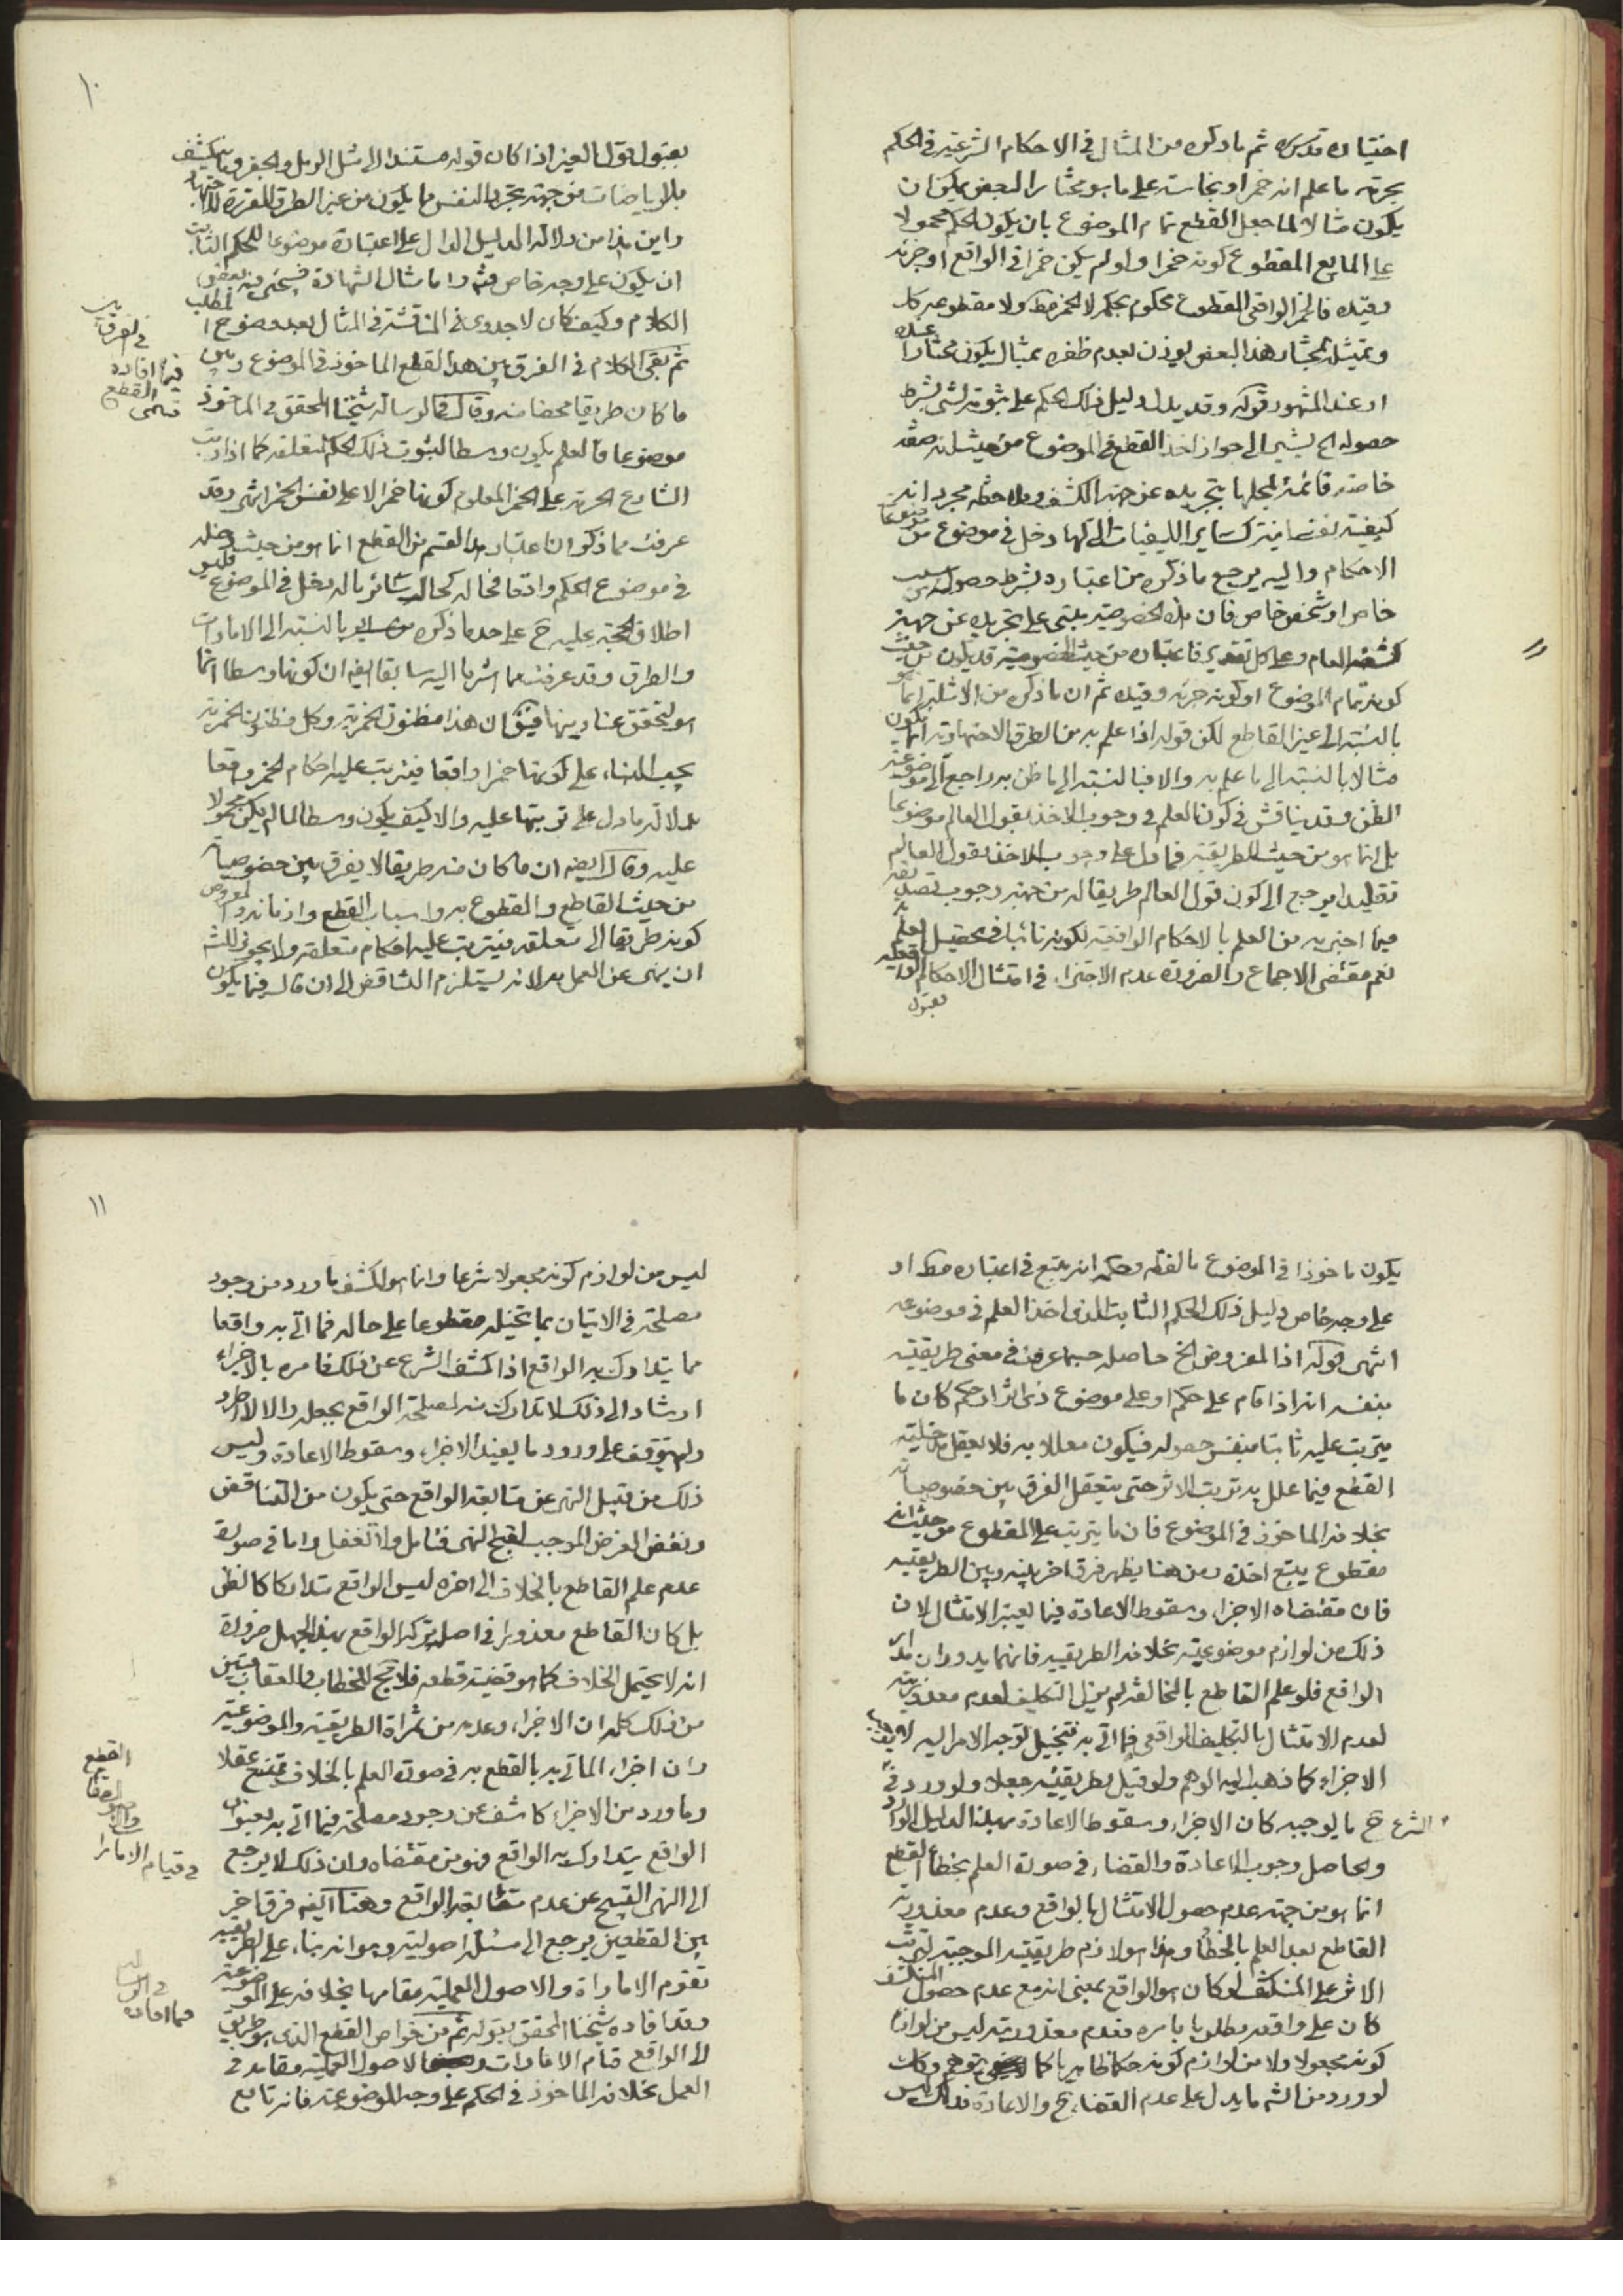 اختياره قدس ثم ما ذكره من المثال في الاحكام الشرعية في الحكم
بحرمة ما علم انه خمر او نجاسته على ما هو مختار البعض يمكن ان
يكون مثالا لما جعل القطع تمام الموضوع بان يكون الحكم محمولا
على المايع المقطوع كونه خمرا ولو لم يكن خمرا في الواقع او جزئه
وقيده فالخمر الواقعي المقطوع محكوم بحكمه لا الخمر فقط ولا مقطوعه
وتمثيله بمختار هذا البعض يوذن بعدم ظفره بمثال يكون مختارا عنده
او عند المشهور قوله وقد يدل دليل ذلك الحكم على ثبوته لشيء بشرط
حصوله الخ يشير الى جواز اخذ القطع في الموضوع من حيث انه صفة
خاصة قائمة بمحلها بتجريده عن جهة الكشف وملاحظة مجرد انه
كيفية نفسانية كساير الكيفيات التي لها دخل في موضوع من
الاحكام واليه يرجع ما ذكره من اعتباره بشرط حصوله من سبب
خاص او شخص خاص فان هذه الخصوصية يبتني على تجريده عن جهة
كشفه العام وعلى كل تقدير فاعتباره من حيث الخصوصية قد يكون من حيث
كونه تمام الموضوع او كونه جزئه وقيده ثم ان ما ذكره من الامثلة انما هو
بالنسبة الى غير القاطع لكن قوله اذا علم به من الطرق الاجتهادية انما يكون
مثالا بالنسبة الى ما علم به والا فبالنسبة الى ما ظن به راجع الى موضوعية
الظن وقد يناقش في كون العلم في وجوب الاخذ بقول العالم موضوعا
بل انما هو من حيث الطريقية فما دل على وجوب الاخذ بقول العالم
تقليدا يرجع الى كون قول العالم طريقا له من جهة وجوب تصديقه
فيما اخبر به من العلم بالاحكام الواقعية لكونه نائبا في تحصيل العلم به
نعم مقتضى الاجماع والضرورة عدم الاجتزاء في امتثال الاحكام الواقعية
بقبول
١٠
بقبول قول الغير اذا كان قوله مستندا الى مثل الرمل والجفر وما ينكشف
بالرياضات من جهة تجرد النفس مما يكون من غير الطرق المقررة لاجتهاد
واين هذا من دلالة الدليل الدال على اعتباره موضوعا للحكم الثابت
ان يكون على وجه خاص فتم واما مثال الشهادة فسيجيء فيه بعض
الكلام وكيف كان لا جدوى في المناقشة في المثال بعد وضوح المطلب
ثم بقي الكلام في الفرق بين هذا القطع الماخوذ في الموضوع وبين
ما كان طريقا محضا منه وقال في الرسالة شيخنا المحقق في الماخوذ
موضوعا فالعلم يكون وسطا لثبوت ذلك الحكم لمتعلقه كما اذا رتب
الشارع الحرمة على الخمر المعلوم كونها خمرا لا على نفس الخمر انتهى وقد
عرفت مما ذكر ان اعتبار هذا القسم من القطع انما هو من حيث دخله
في موضوع الحكم واقعا فحاله كحال سائر ما له دخل في الموضوع فليس
اطلاق الحجة عليه ح على حد ما ذكره بالنسبة الى الامارات
والطرق وقد عرفت مما اشرنا اليه سابقا ايضه ان كونها وسطا انما
هو لتحقق عناوينها فيق ان هذا مظنون الخمرية وكل مظنون الخمرية
يجب البناء على كونها خمرا واقعا فيترتب عليه احكام الخمر واقعا
بدلالة ما دل على ترتبها عليه والا كيف يكون وسطا لما لم يكن محمولا
عليه وقال ايضه ان ما كان منه طريقا لا يفرق بين خصوصياته
من حيث القاطع والمقطوع به واسباب القطع وازمانه اذ المفروض
كونه طريقا الى متعلقه فيترتب عليه احكام متعلقه ولا يجوز للشه
ان ينهى عن العمل به لانه يستلزم التناقض الى ان قال فيما يكون
في الفرق بين
فيما افاده
القطع
يكون ماخوذا في الموضوع ما لفظه وحكمه انه يتبع في اعتباره مطلقا او
على وجه خاص دليل ذلك الحكم الثابت الذي اخذ العلم في موضوعه
انتهى قوله اذ المفروض الخ حاصله حسبما عرفت في معنى طريقيته
بنفسه انه اذا قام على حكم او على موضوع ذي اثر او حكم كان ما
يترتب عليه ثابتا بنفس حصوله فيكون معللا به فلا يعقل مدخلية
القطع فيما علل به ترتب الاثر حتى يتعقل الفرق بين خصوصياته
بخلافه الماخوذ في الموضوع فان ما يترتب على المقطوع من حيث انه
مقطوع يتبع اخذه ومن هنا يظهر فرق اخر بينه وبين الطريقية
فان مقتضاه الاجزاء وسقوط الاعادة فيما يعتبر الامتثال لان
ذلك من لوازم موضوعيته بخلافه الطريقية فانهما يدوران مدار
الواقع فلو علم القاطع بالمخالفة لم يزل التكليف لعدم معذوريته
لعدم الامتثال بالتكليف الواقعي فما اتى به بتخيل توجه الامر اليه لا يفيد
الاجزاء كما ذهب اليه الوهم ولو قيل بطريقيته جعلا ولو ورد في
الشرع ح ما يوجبه كان الاجزاء وسقوط الاعادة بهذا الدليل الوارد
والحاصل وجوب الاعادة والقضاء في صورة العلم بخطاء القطع
انما هو من جهة عدم حصول الامتثال بالواقع وعدم معذورية
القاطع بعد العلم بالخطأ وهذا هو لازم طريقيته الموجبة لترتب
الاثر على المنكشف لو كان هو الواقع بمعنى انه مع عدم حصول المنكشف
كان على واقعه مطلوبا بامره فعدم معذوريته ليس من لوازم
كونه مجعولا ولا من لوازم كونه حكما ظاهريا كما توهم وكك
لو ورد من الشه ما يدل على عدم القضاء ح والاعادة فذلك ليس
١١
ليس من لوازم كونه مجعولا شرعا وانما هو لكشف ما ورد من وجود
مصلحة في الاتيان بما تخيله مقطوعا على حاله فما اتى به واقعا
مما يتدارك به الواقع اذا كشف الشرع عن ذلك فامره بالاجزاء
ارشاد الى ذلك لا تدارك منه لمصلحة الواقع بجعله والا لاطرد
ولم يتوقف على ورود ما يفيد الاجزاء وسقوط الاعادة وليس
ذلك من قبيل النهى عن متابعة الواقع حتى يكون من التناقض
ونقض الغرض الموجب لقبح النهى فتامل ولا تغفل واما في صورة
عدم علم القاطع بالخلاف الى اخره ليس الواقع متداركا كالظن
بل كان القاطع معذورا في اصل ترك الواقع بهذا الجهل ضرورة
انه لا يحتمل الخلاف كما هو قضية قطعه فلا يصح الخطاب والعقاب فتبين
من ذلك كله ان الاجزاء وعدمه من ثمراة الطريقية والموضوعية
وان اجزاء الماتي به بالقطع به في صورة العلم بالخلاف ممتنع عقلا
وما ورد من الاجزاء كاشف عن وجود مصلحة فيما اتى به بعنوان
الواقع يتدارك به الواقع فهو من مقتضاه وان ذلك لا يرجع
الى النهى القبيح عن عدم متابعة الواقع وهنا ايضه فرق اخر
بين القطعين يرجع الى مسئلة اصولية وهو انه بناء على الطريقية
تقوم الاماراة والاصول العملية مقامها بخلافه على الموضوعية
وقد افاده شيخنا المحقق بقوله ثم من خواص القطع الذي هو طريق
الى الواقع قيام الامارات والاصول العملية مقامه في
العمل بخلافه الماخوذ في الحكم على وجه الموضوعية فانه تابع
القطع
في قيام الامارا
في الرسالة
فما افاده